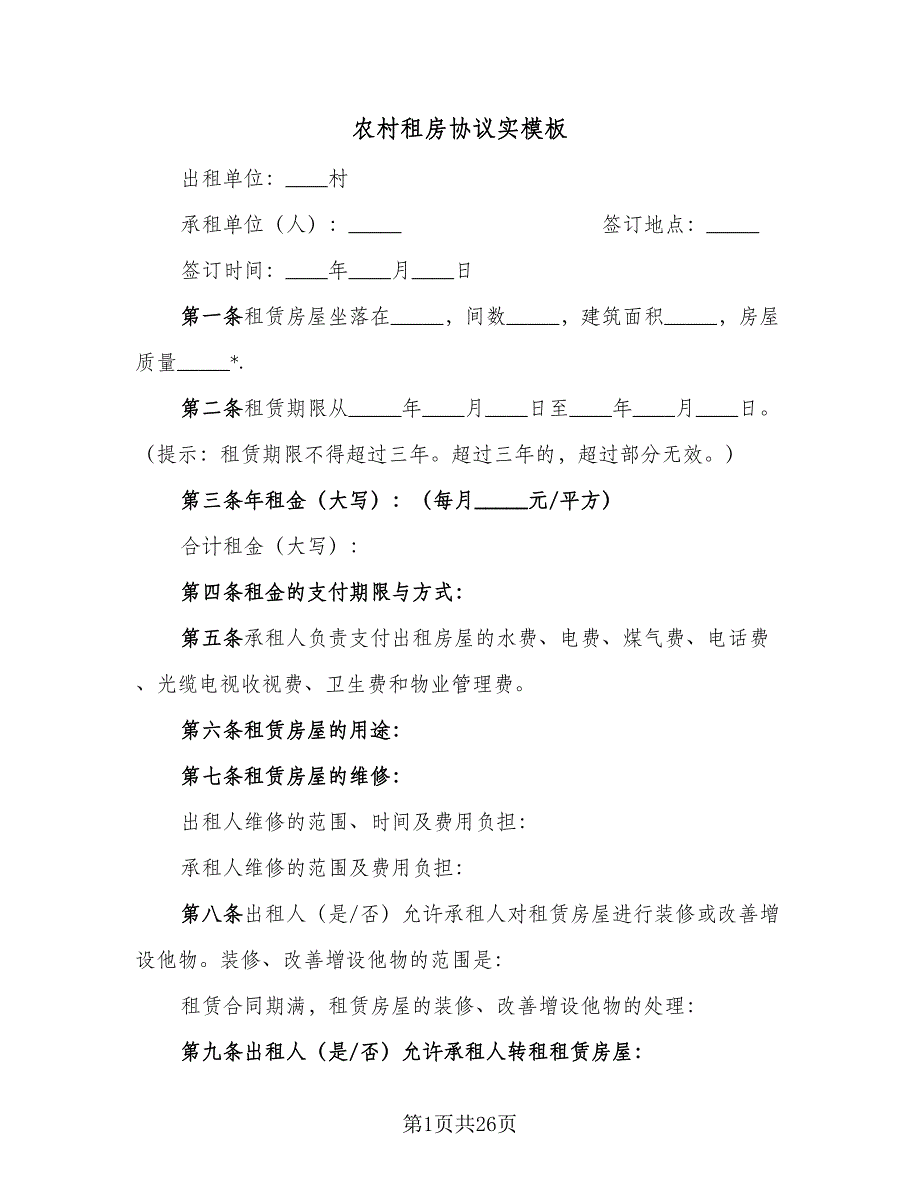 农村租房协议实模板
出租单位：____村
承租单位（人）：_____ 签订地点：_____
签订时间：____年____月____日
第一条租赁房屋坐落在_____，间数_____，建筑面积_____，房屋
质量_____*.
第二条租赁期限从_____年____月____日至____年____月____日。
（提示：租赁期限不得超过三年。超过三年的，超过部分无效。）
第三条年租金（大写）：（每月_____元/平方）
合计租金（大写）：
第四条租金的支付期限与方式：
第五条承租人负责支付出租房屋的水费、电费、煤气费、电话费
、光缆电视收视费、卫生费和物业管理费。
第六条租赁房屋的用途：
第七条租赁房屋的维修：
出租人维修的范围、时间及费用负担：
承租人维修的范围及费用负担：
第八条出租人（是/否）允许承租人对租赁房屋进行装修或改善增
设他物。装修、改善增设他物的范围是：
租赁合同期满，租赁房屋的装修、改善增设他物的处理：
第九条出租人（是/否）允许承租人转租租赁房屋：
第1页共26页